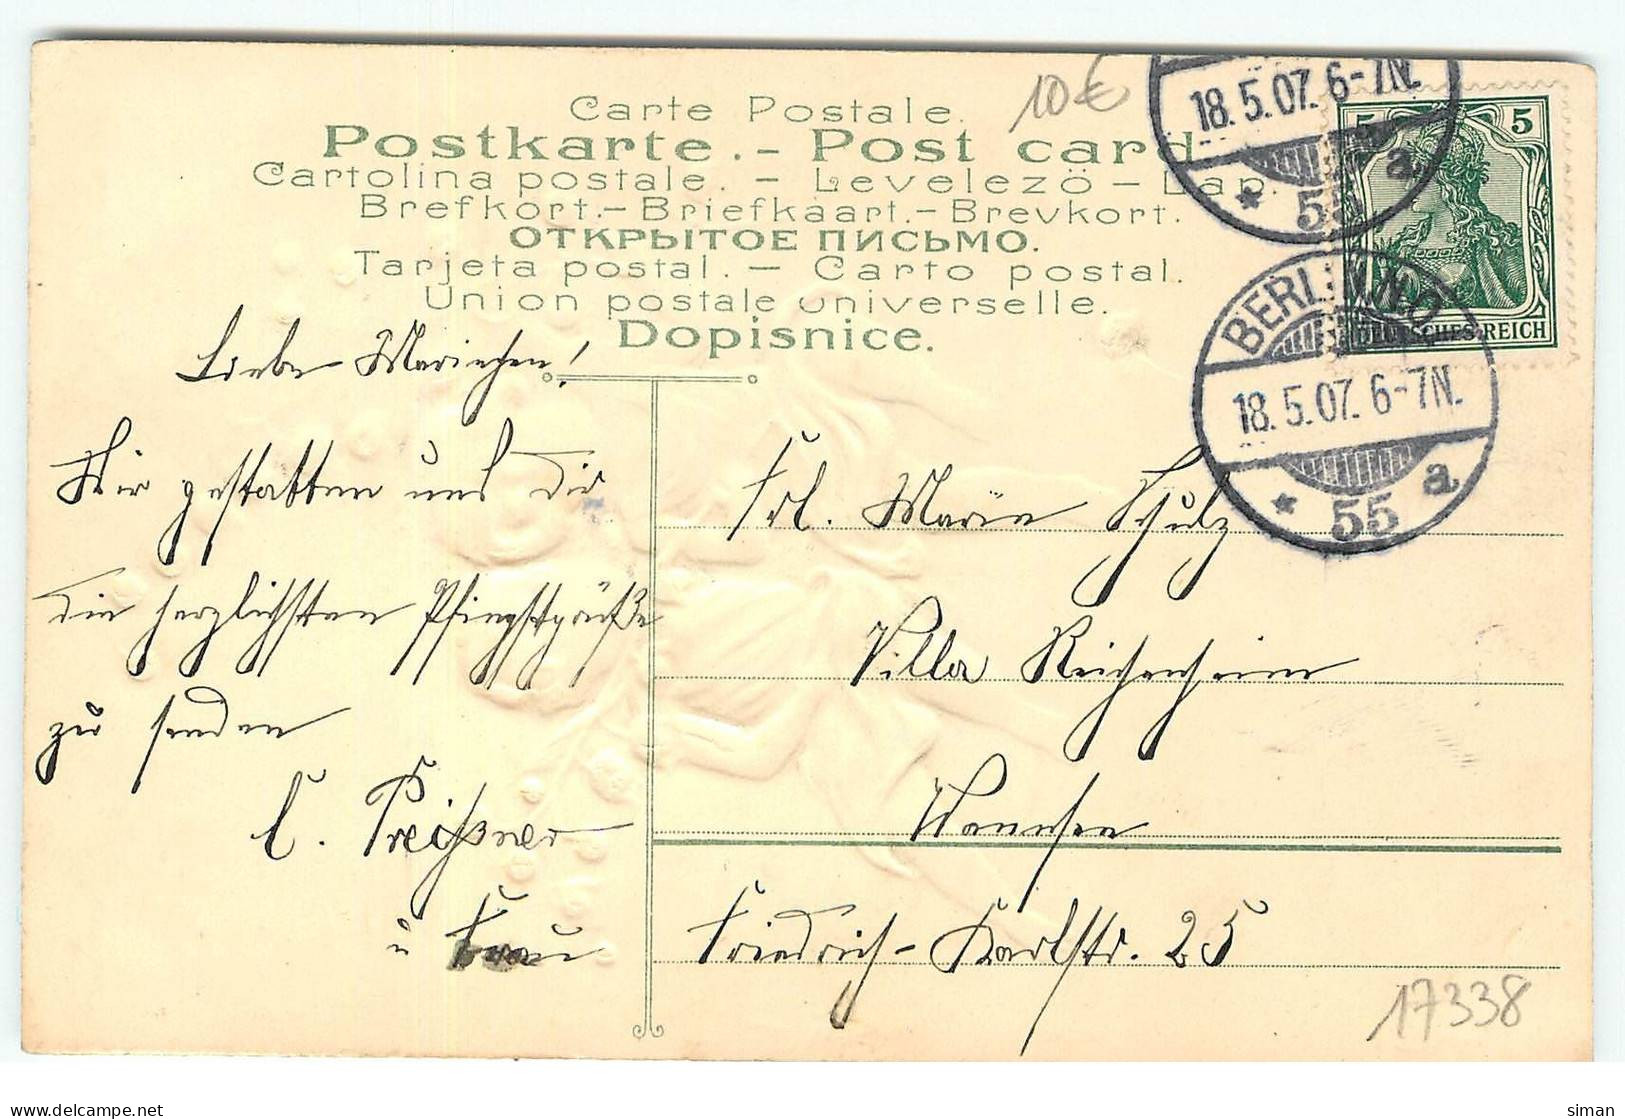 Carte Postale.
Postkarte. - Post card
Cartolina postale. - Levelező - Lap.
Brefkort. - Briefkaart. - Brevkort.
ОТКРЫТОЕ ПИСЬМО.
Tarjeta postal. - Carto postal.
Union postale universelle.
Dopisnice.
10€
18.5.07. 6-7N.
* 55 a
5 5
DEUTSCHES REICH
BERLIN N.O.
18.5.07. 6-7N.
* 55 a
Liebe Mariechen!
Wir gestatten uns dir
die herzlichsten Pfingstgrüße
zu senden
C. Preißner
u Frau
Frl. Marie Schulz
Villa Reichenheim
Wannsee
Friedrich-Karlstr. 25
17338
delcampe.net
siman